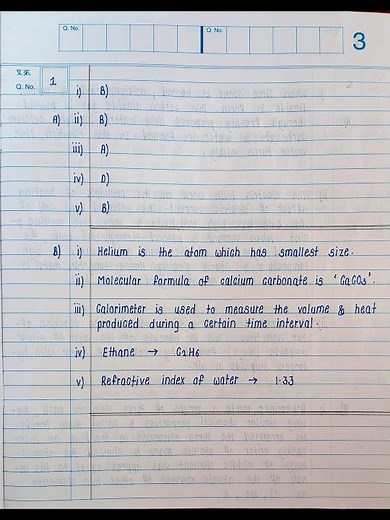 Q. No. Q. No. 3
प्र.क्र.
Q. No. 1
i) B)
A) ii) B)
iii) A)
iv) D)
v) B)
B) i) Helium is the atom which has smallest size.
ii) Molecular formula of calcium carbonate is 'CaCO3'.
iii) Calorimeter is used to measure the volume & heat
produced during a certain time interval.
iv) Ethane → C2H6
v) Refractive index of water → 1.33